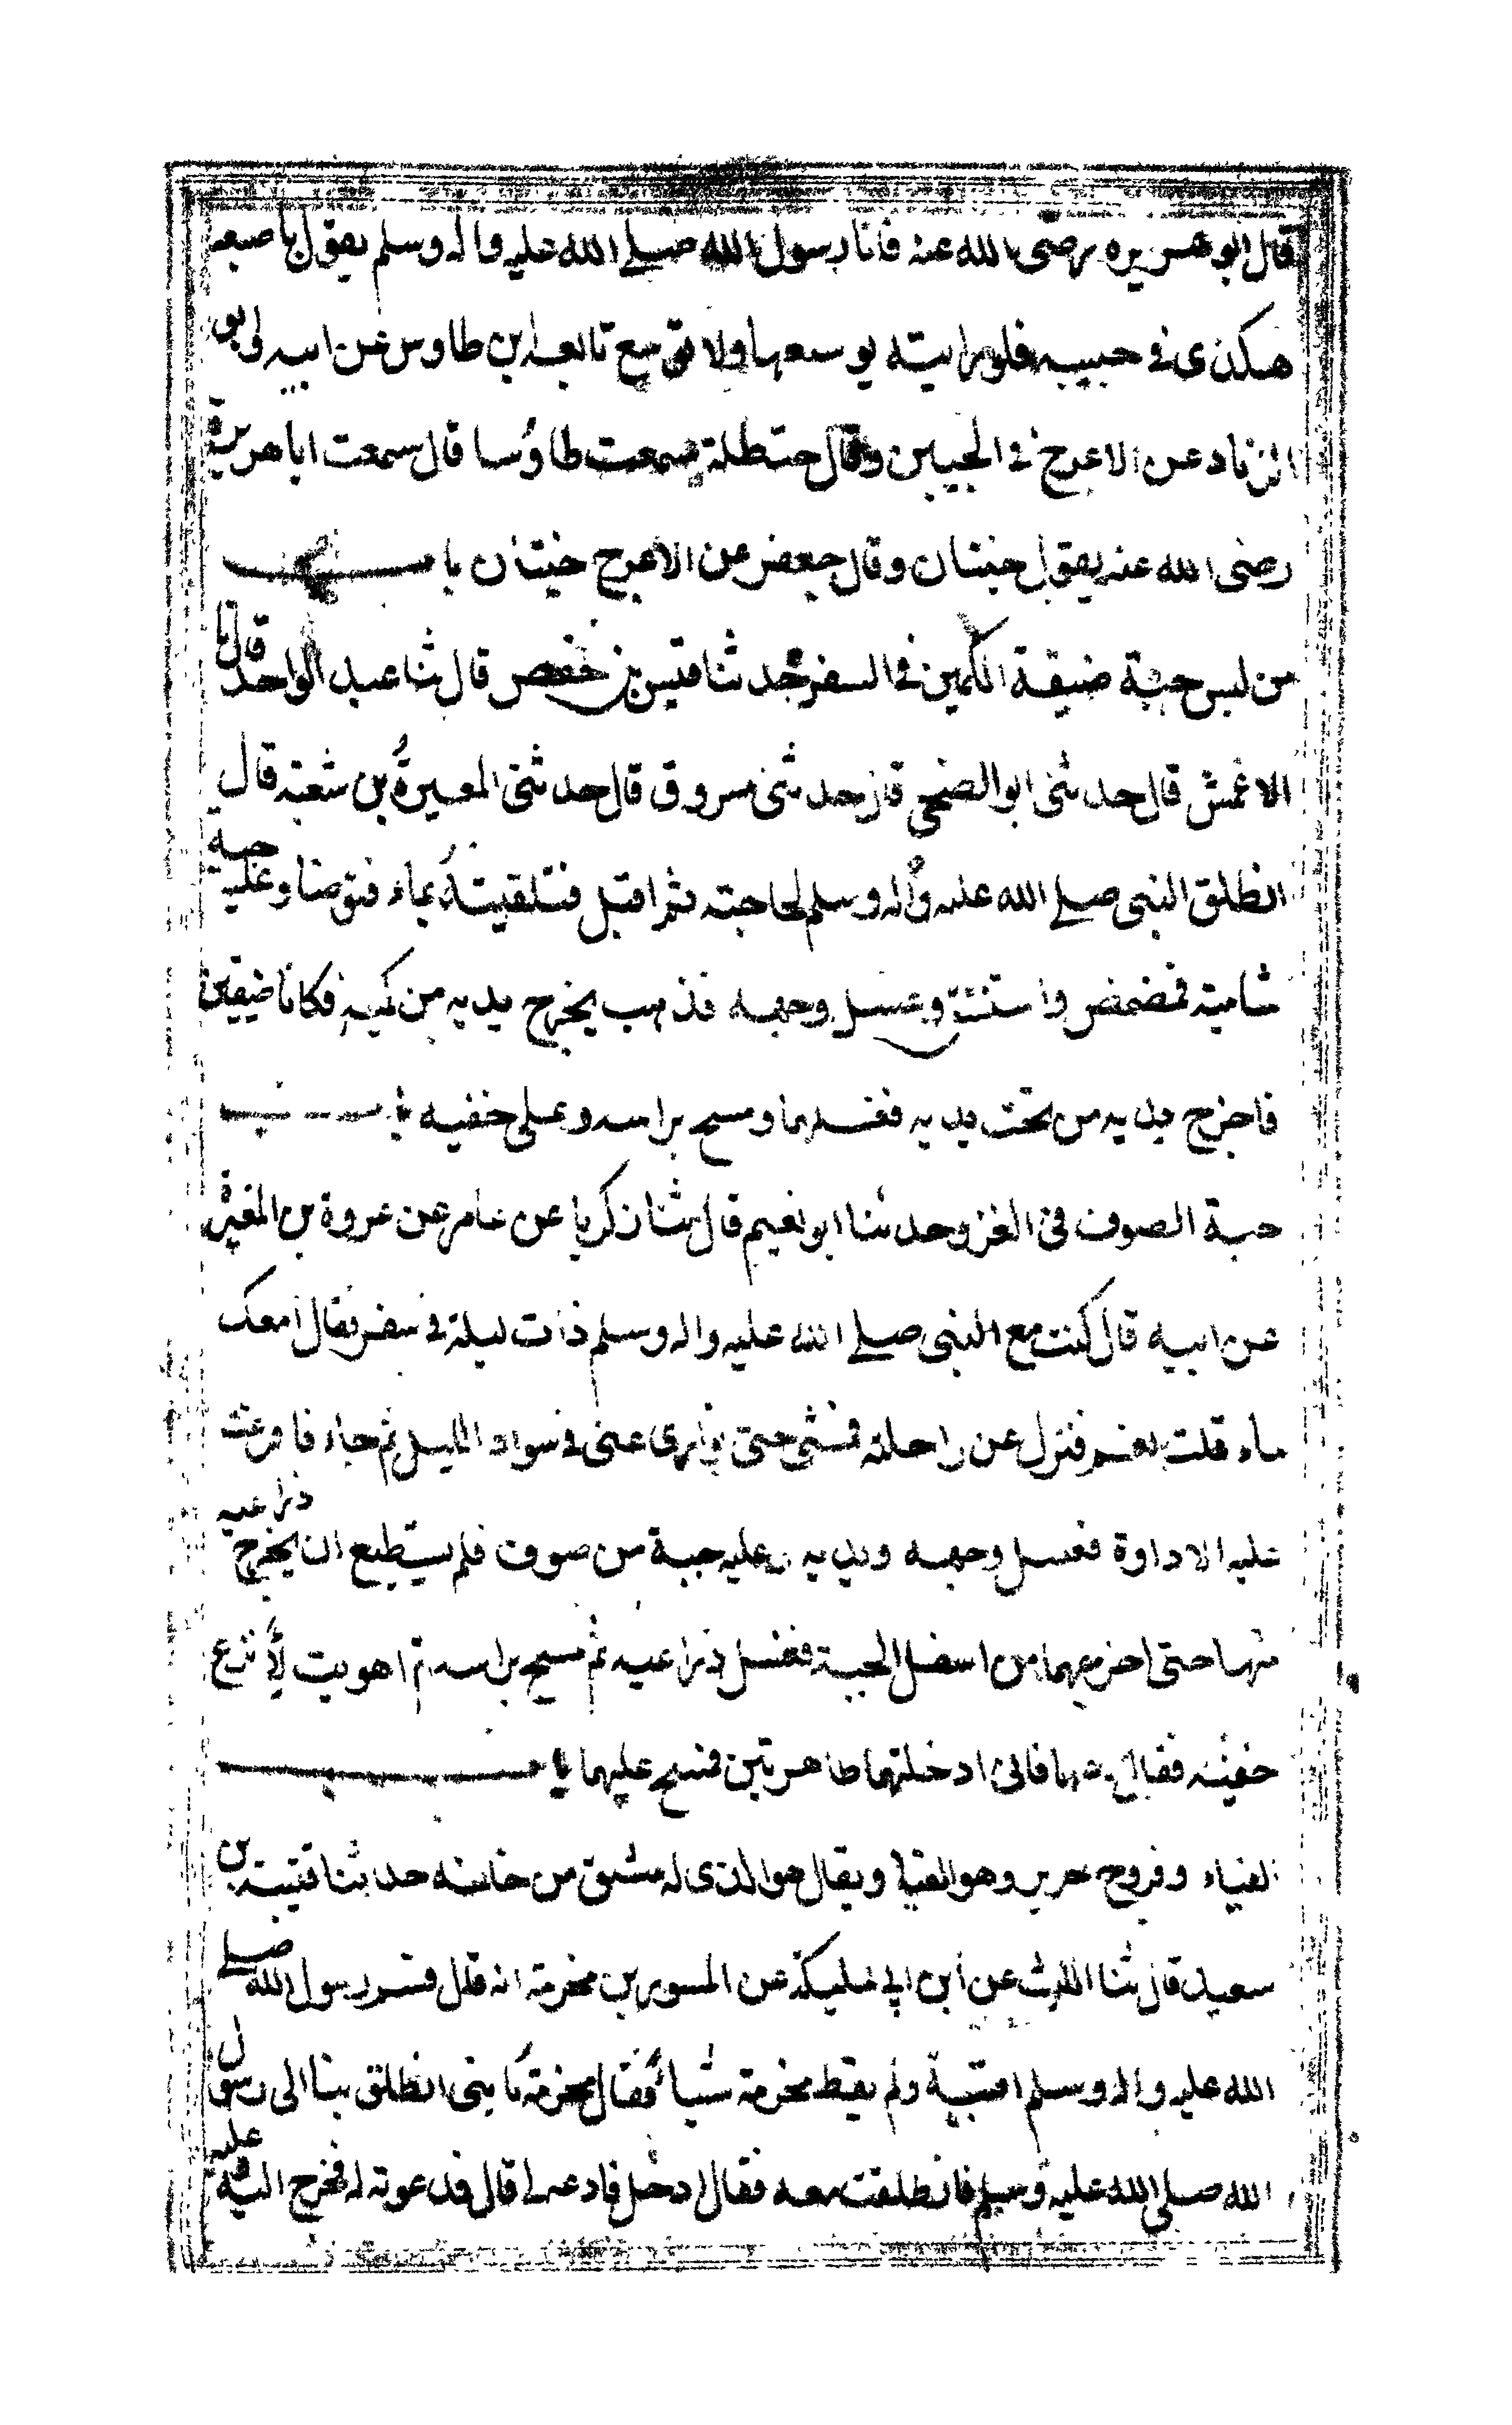 قال ابو هريره رضى الله عنه فانا رسول الله صلے الله عليه واله وسلم يقول باصبعه
هكذى فى جيبه فلو رايته يوسعها ولا توسع تابعه ابن طاوس عن ابيه وابو
الزناد عن الاعرج فى الجيبين وقال حنظلة سمعت طاؤسا قال سمعت ابا هريرة
رضى الله عنه يقول جبتان وقال جعفر عن الاعرج جبتان باب
من لبس جبة ضيقة الكمين فى السفر حدثنا قيس بن حفص قال ثنا عبد الواحد قال ثنا
الاعمش قال حدثنى ابو الضحى قال حدثنى مسروق قال حدثنى المغيرة بن شعبة قال
انطلق النبى صلے الله عليه واله وسلم لحاجته ثم اقبل فتلقيته بماء فتوضا وعليه جبة
شامية فمضمض واستنثر وغسل وجهه فذهب يخرج يديه من كميه فكانا ضيقين
فاخرج يديه من تحت يديه فغسلهما ومسح براسه وعلى خفيه باب
جبة الصوف فى الغزو حدثنا ابو نعيم قال ثنا زكريا عن عامر عن عروة بن المغيرة
عن ابيه قال كنت مع النبى صلے الله عليه واله وسلم ذات ليلة فى سفر فقال امعك
ماء قلت نعم فنزل عن راحلته فمشى حتى توارى عنى فى سواد الليل ثم جاء فافرغت
عليه الاداوة فغسل وجهه ويديه وعليه جبة من صوف فلم يستطيع ان يخرج ذراعيه
منها حتى اخرجهما من اسفل الجبة فغسل ذراعيه ثم مسح براسه ثم اهويت لانزع
خفيه فقال دعهما فانى ادخلتهما طاهرتين فمسح عليهما باب
القباء وفروج حرير وهو القباء ويقال هو الذى له شق من خلفه حدثنا قتيبة بن
سعيد قال ثنا الليث عن ابن ابى مليكة عن المسور بن مخرمة انه قال قسم رسول الله صلے
الله عليه واله وسلم اقبية ولم يعط مخرمة شيئا فقال مخرمة يا بنى انطلق بنا الى رسول
الله صلى الله عليه وسلم فانطلقت معه فقال ادخل فادعه لى قال فدعوته له فخرج اليه وعليه